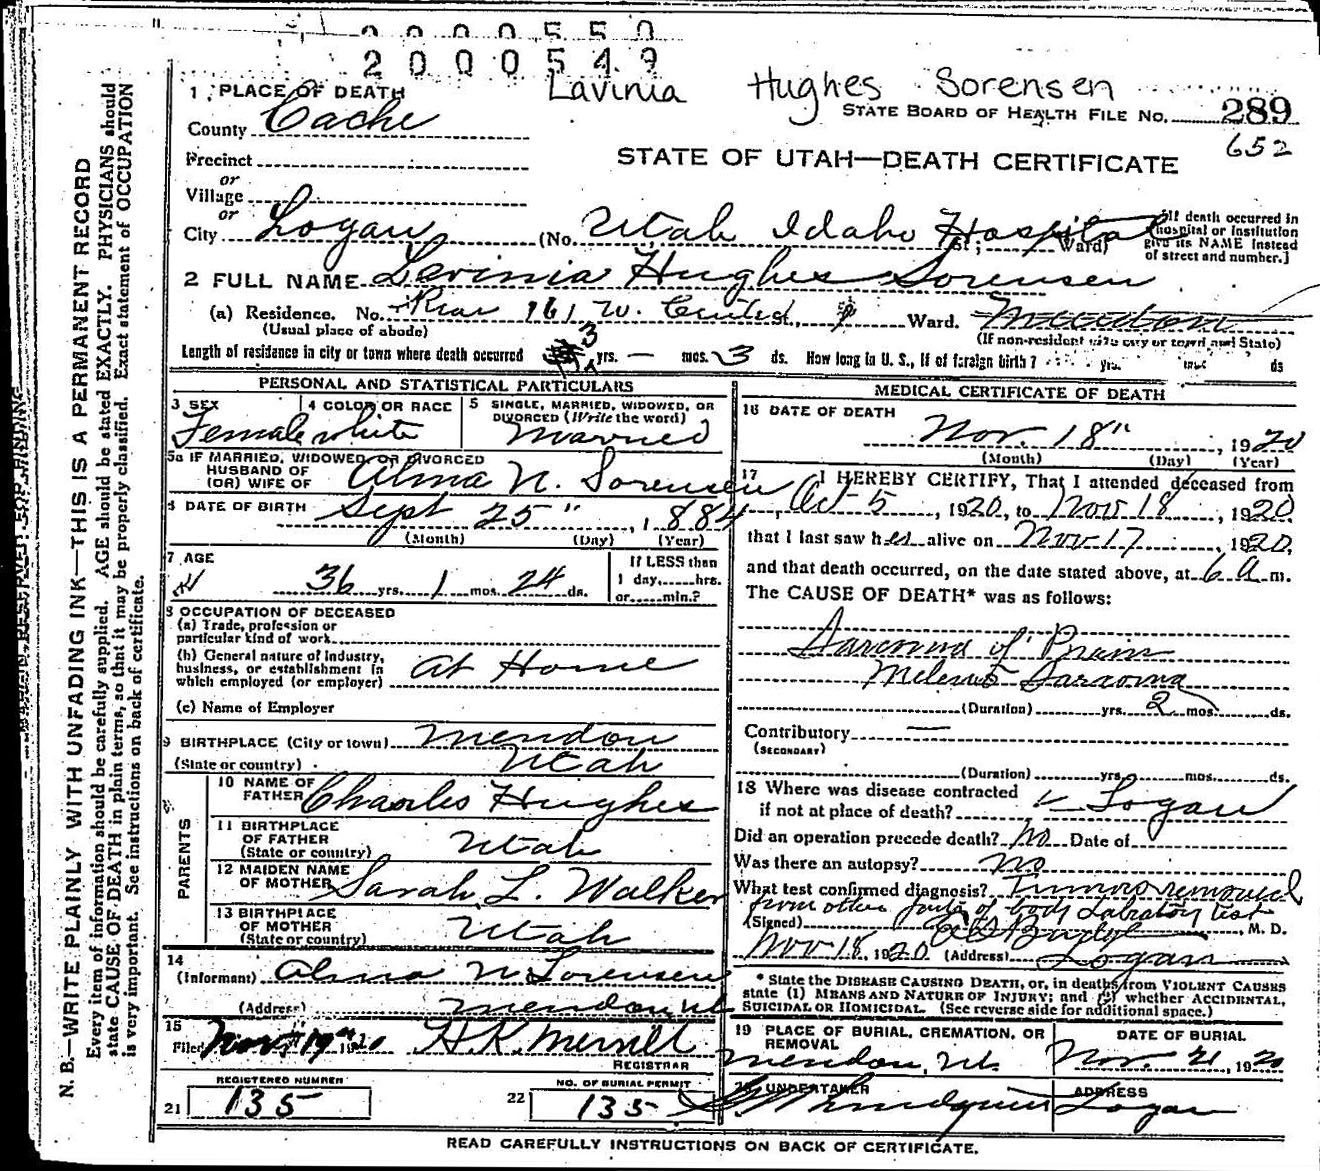 2 0 0 0 5 5 0
2 0 0 0 5 4 9
Lavinia Hughes Sorensen
1 PLACE OF DEATH
STATE BOARD OF HEALTH FILE No. 289
652
County Cache
Precinct
STATE OF UTAH—DEATH CERTIFICATE
or
Village
or
City Logan (No. Utah Idaho Hospital St.; Ward)
[If death occurred in
hospital or institution
give its NAME instead
of street and number.]
2 FULL NAME Lavinia Hughes Sorensen
(a) Residence. No. Rear 161 W. Center St., Ward. Mendon
(Usual place of abode)
(If non-resident give city or town and State)
Length of residence in city or town where death occurred 3 yrs. — mos. 3 ds. How long in U. S., if of foreign birth? yrs. mos. ds
PERSONAL AND STATISTICAL PARTICULARS
3 SEX
Female
4 COLOR OR RACE
white
5 SINGLE, MARRIED, WIDOWED, OR
DIVORCED (Write the word)
Married
5a IF MARRIED, WIDOWED OR DIVORCED
HUSBAND OF
(OR) WIFE OF Alma N. Sorensen
6 DATE OF BIRTH Sept 25", 1884
(Month) (Day) (Year)
7 AGE
36 yrs. 1 mos. 24 ds.
If LESS than
1 day,.....hrs.
or.....min.?
8 OCCUPATION OF DECEASED
(a) Trade, profession or
particular kind of work
(b) General nature of industry,
business, or establishment in
which employed (or employer) At Home
(c) Name of Employer
9 BIRTHPLACE (City or town) Mendon
(State or country) Utah
PARENTS
10 NAME OF
FATHER Charles Hughes
11 BIRTHPLACE
OF FATHER
(State or country) Utah
12 MAIDEN NAME
OF MOTHER Sarah L. Walker
13 BIRTHPLACE
OF MOTHER
(State or country) Utah
14
(Informant) Alma N. Sorensen
(Address) Mendon Ut
15
Filed Nov 19th 1920 H.K. Merrill
REGISTRAR
REGISTERED NUMBER
21 135
NO. OF BURIAL PERMIT
22 135
MEDICAL CERTIFICATE OF DEATH
16 DATE OF DEATH
Nov. 18", 1920
(Month) (Day) (Year)
17 I HEREBY CERTIFY, That I attended deceased from
Oct 5, 1920, to Nov 18, 1920,
that I last saw her alive on Nov 17, 1920,
and that death occurred, on the date stated above, at 6 a m.
The CAUSE OF DEATH* was as follows:
Sarcoma of Brain
Sarcoma
(Duration) yrs. 2 mos. ds.
Contributory —
(SECONDARY)
(Duration) yrs. mos. ds.
18 Where was disease contracted
if not at place of death? Logan
Did an operation precede death? No Date of
Was there an autopsy? No
What test confirmed diagnosis? Tumors removed
from other parts of body Labratory test
(Signed) M. D.
Nov 18, 1920. (Address) Logan
* State the DISEASE CAUSING DEATH, or, in deaths from VIOLENT CAUSES
state (1) MEANS AND NATURE OF INJURY; and (2) whether ACCIDENTAL,
SUICIDAL OR HOMICIDAL. (See reverse side for additional space.)
19 PLACE OF BURIAL, CREMATION, OR
REMOVAL
Mendon, Ut.
DATE OF BURIAL
Nov. 21, 1920
20 UNDERTAKER
ADDRESS
Logan
READ CAREFULLY INSTRUCTIONS ON BACK OF CERTIFICATE.
N. B.—WRITE PLAINLY WITH UNFADING INK—THIS IS A PERMANENT RECORD
Every item of information should be carefully supplied. AGE should be stated EXACTLY. PHYSICIANS should
state CAUSE OF DEATH in plain terms, so that it may be properly classified. Exact statement of OCCUPATION
is very important. See instructions on back of certificate.